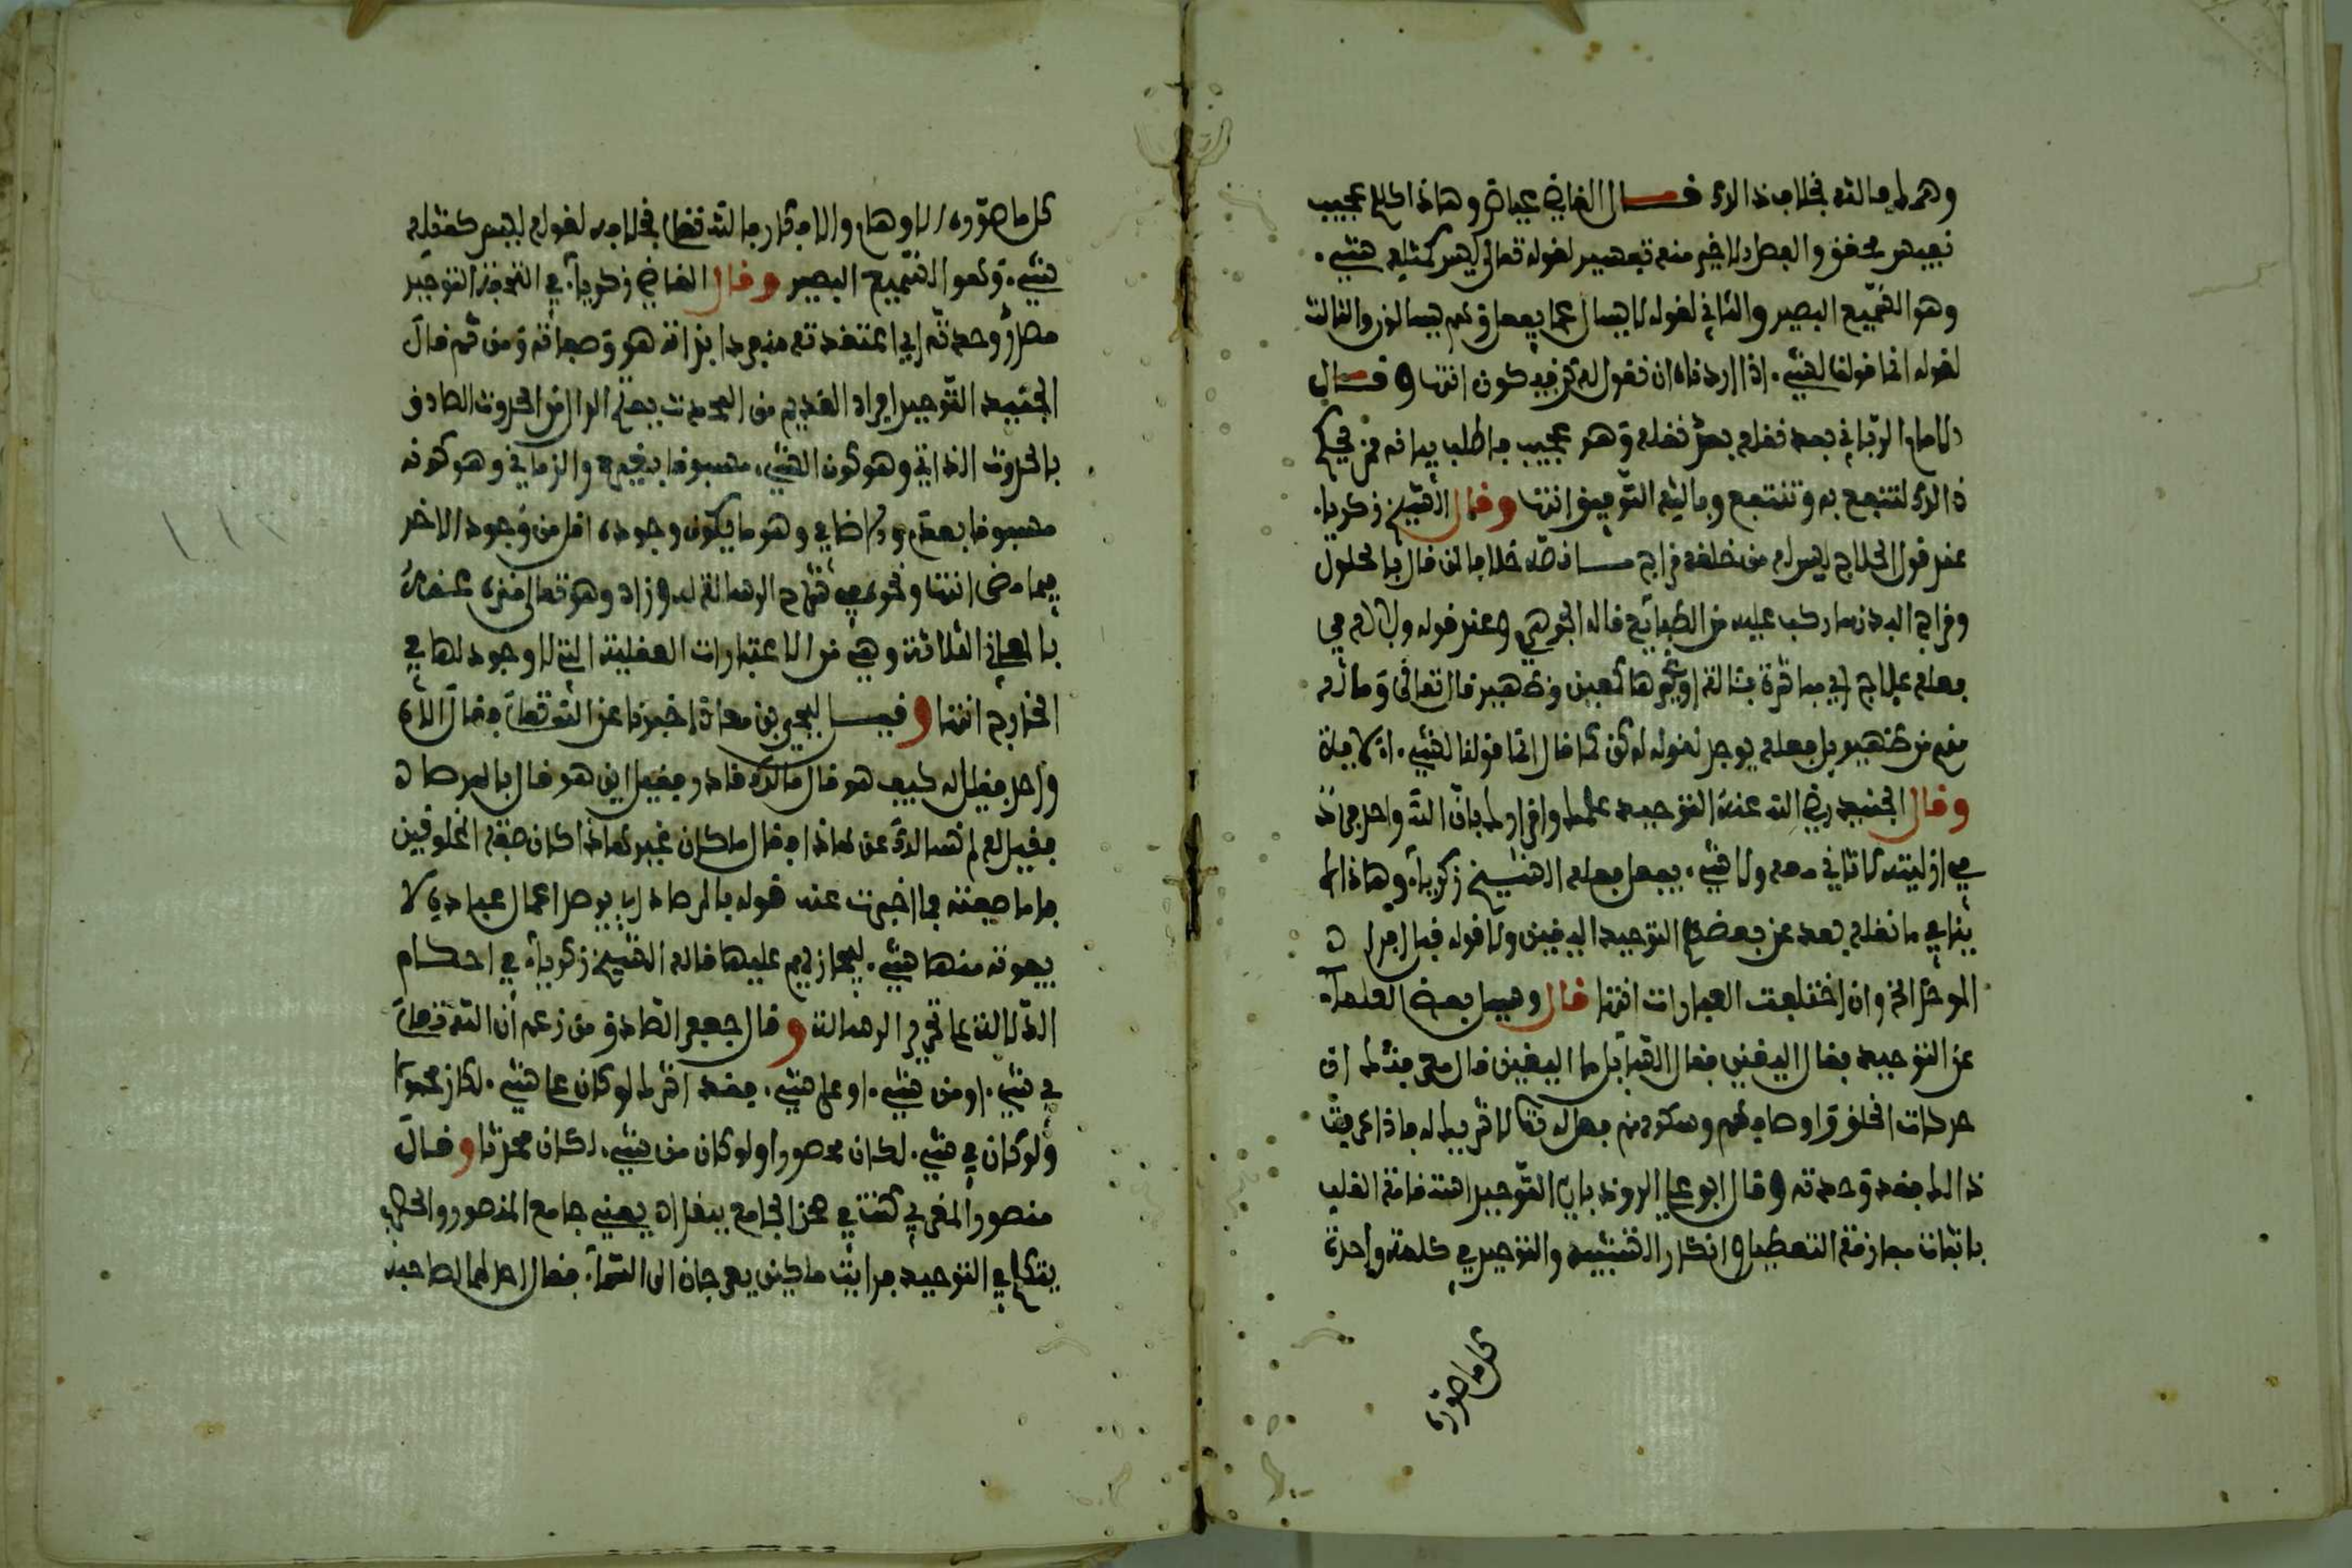 وهمك فالله بخلاف ذالك قال القاضي عياض وهاذا كلام عجيب
نفيس محقق والفصل الاخير منه تفسير لقوله تعالى ليس كمثله شيء.
وهو السميع البصير والثاني لقوله لا يسال عما يفعل وهم يسالون والثالث
لقوله انما قولنا لشيء. اذا اردناه ان نقول له كن فيكون انتها وقال
الامام الرباني بعد نقله بعض نقله وهو عجيب فاطلب بيانه من محكم
ذالك لتنجح به وتنتفع وبالله التوفيق انتها وقال الشيخ زكرياء
عند قول الحلاج ليس له من خلقه مزاج ما نصه خلافا لمن قال بالحلول
ومزاج البدن ما ركب عليه من الطبائع قاله الجوهري وعند قوله ولا له في
فعله علاج اي مباشرة بئالة او غيرها كمعين وظهير قال تعالى وماله
منهم من ظهير بل فعله يوجد لقوله له كن كما قال انما قولنا لشيء. الاية
وقال الجنيد رضي الله عنه التوحيد علمك واقرارك بان الله واحد فرد
في ازليته لا ثاني معه ولا شيء. يفعل فعله الشيخ زكرياء. وهاذا لا
ينافي ما نقله بعد عن بعضهم التوحيد اليقين ولا قوله قبل افراد
الموحد الخ وان اختلفت العبارات انتها قال وسيل بعض العلماء
عن التوحيد فقال اليقين فقال السايل ما اليقين قال معرفتك ان
حركات الخلق واوصافهم وسكونهم فعل له تعالى لا شريك له فاذا عرفت
ذالك فقد وحدته وقال ابو علي الروذباري التوحيد استقامة القلب
باثبات مفارقة التعطيل وانكار التشبيه والتوحيد في كلمة واحدة
كل ما صوره
كل ما صوره الاوهام والافكار فالله تعالى بخلافه لقوله ليس كمثله
شيء. وهو السميع البصير وقال القاضي زكرياء في التحفة التوحيد
مصدر وحدته اي اعتقدته منفردا بذاته وصفاته ومن ثم قال
الجنيد التوحيد افراد القديم من المحدث بفتح الدال من الحدوث الصادق
بالحدوث الذاتي وهو كون الشيء. مسبوقا بغيره والزماني وهو كونه
مسبوقا بعدم والاضافي وهو ما يكون وجوده اقل من وجود الاخر
فيما مضى انتها ونحوه في شرح الرسالة له وزاد وهو تعالى منزه عنها
بالمعاني الثلاثة وهي من الاعتبارات العقلية التي لا وجود لها في
الخارج انتها وقيل ليحي بن معاذ اخبرنا عن الله تعالى فقال الاه
واحد فقيل له كيف هو قال مالك قادر فقيل اين هو قال بالمرصاد
فقيل له لم نسالك عن هاذا فقال ما كان غير هاذا كان صفة المخلوقين
فاما صفته فما اخبرت عنه قوله بالمرصاد اي يرصد اعمال عباده لا
يفوته منها شيء. ليجازيهم عليها قاله الشيخ زكرياء في احكام
الدلالة على تحرير الرسالة وقال جعفر الصادق من زعم ان الله تعالى
في شيء. او من شيء. او على شيء. فقد اشرك لو كان على شيء. لكان محمولا
ولو كان في شيء. لكان محصورا ولو كان من شيء. لكان محدثا وقال
منصور المغربي كنت في صحن الجامع ببغداد يعني جامع المنصور والحصري
يتكلم في التوحيد فرايت ملكين يعرجان الى السماء. فقال احدهما لصاحبه